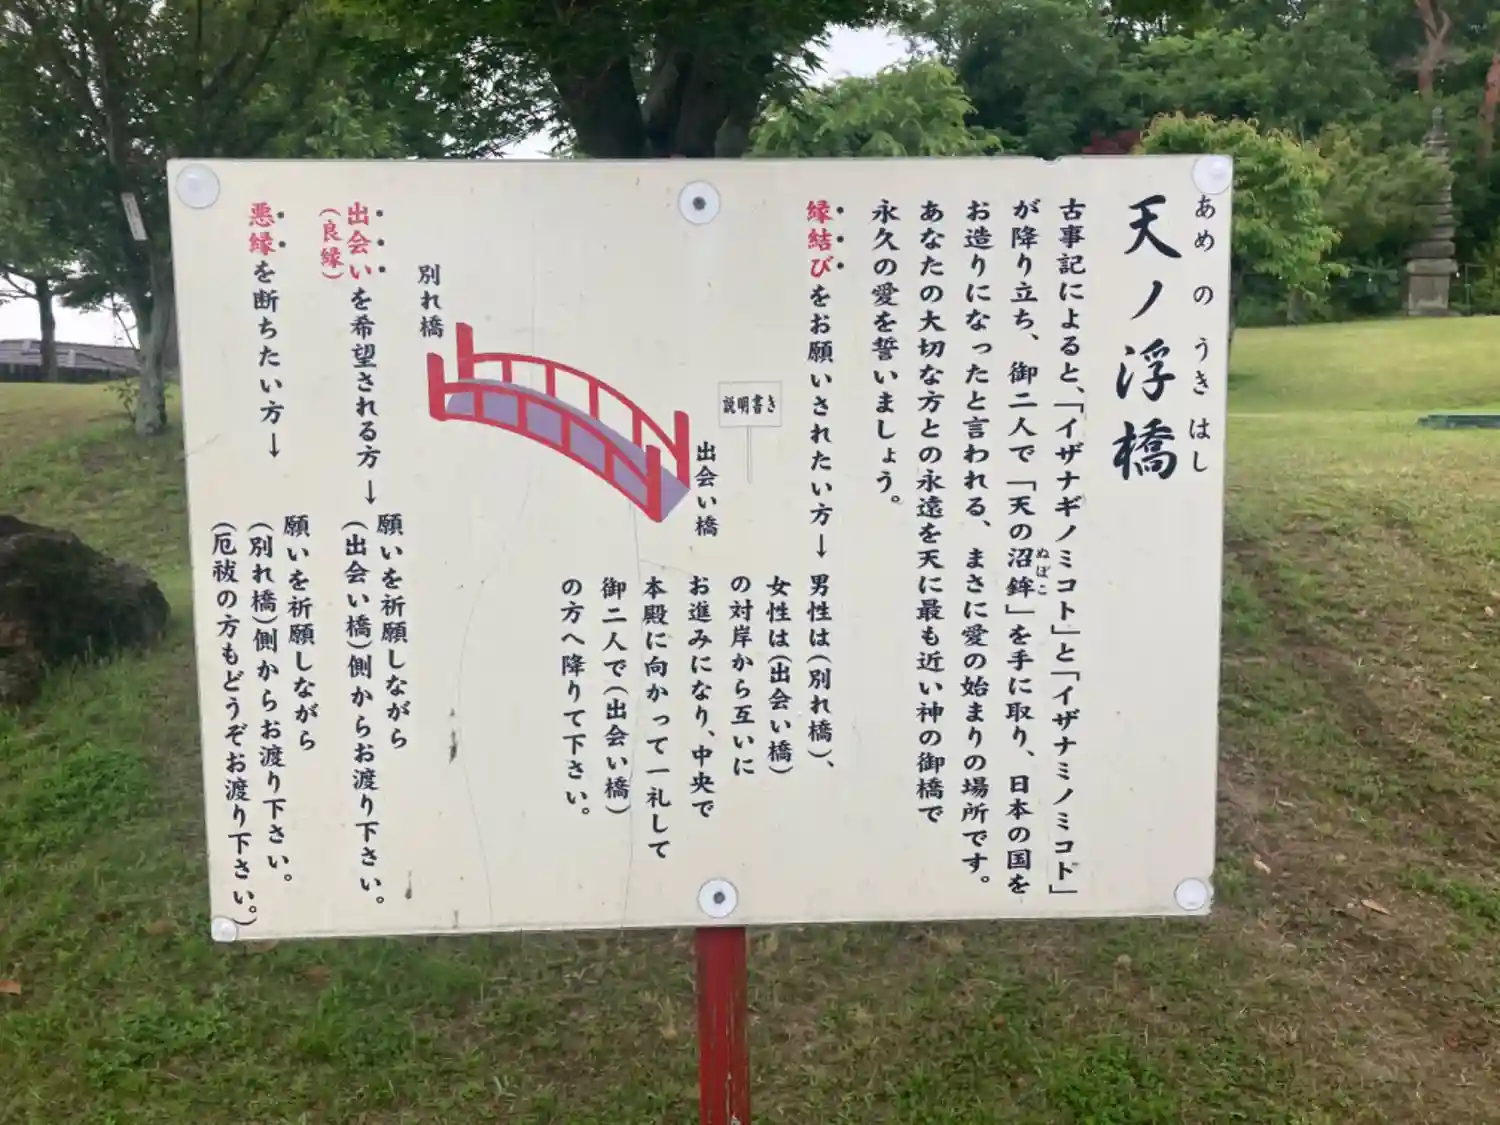 あめのうきはし
天ノ浮橋
古事記によると、「イザナギノミコト」と「イザナミノミコト」
が降り立ち、御二人で「天の沼鉾」を手に取り、日本の国を
ぬぼこ
お造りになったと言われる、まさに愛の始まりの場所です。
あなたの大切な方との永遠を天に最も近い神の御橋で
永久の愛を誓いましょう。
縁結びをお願いされたい方→男性は(別れ橋)、
女性は(出会い橋)
の対岸から互いに
お進みになり、中央で
本殿に向かって一礼して
御二人で(出会い橋)
の方へ降りて下さい。
説明書き
出会い橋
別れ橋
出会いを希望される方→願いを祈願しながら
(良縁)
(出会い橋)側からお渡り下さい。
悪縁を断ちたい方→願いを祈願しながら
(別れ橋)側からお渡り下さい。
(厄祓の方もどうぞお渡り下さい。)